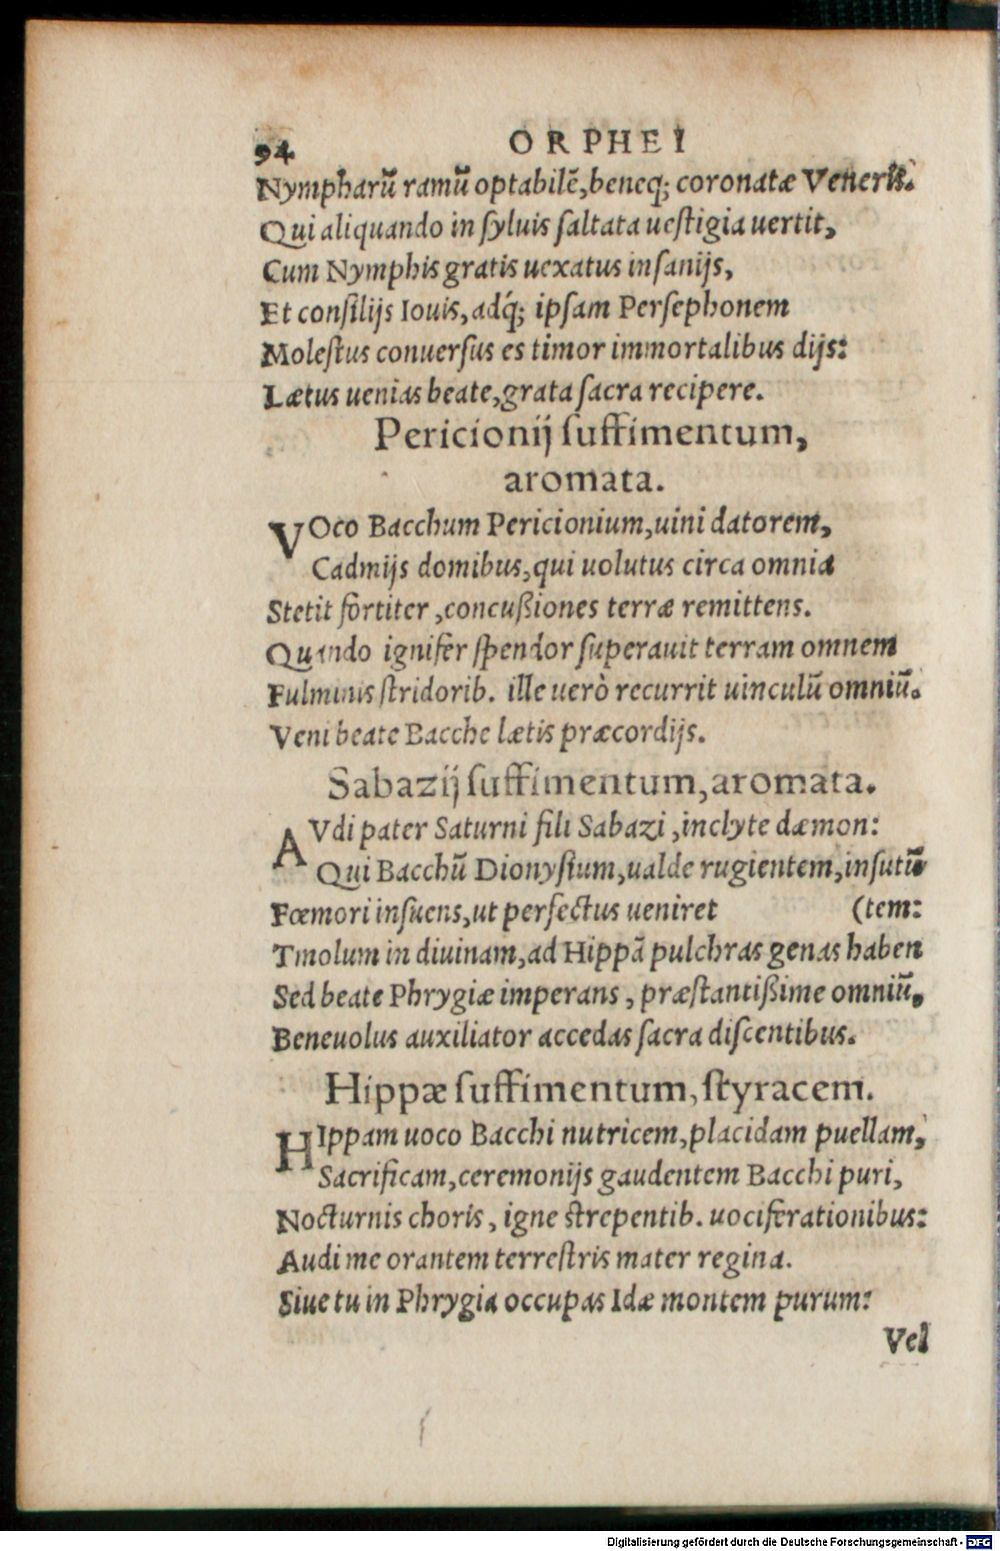 94 ORPHEI
Nympharũ ramũ optabilẽ, beneq; coronatæ Veneris.
Qui aliquando in syluis saltata uestigia uertit,
Cum Nymphis gratis uexatus insanijs,
Et consilijs Iouis, adq́; ipsam Persephonem
Molestus conuersus es timor immortalibus dijs:
Lætus uenias beate, grata sacra recipere.
Pericionij suffimentum,
aromata.
VOco Bacchum Pericionium, uini datorem,
Cadmijs domibus, qui uolutus circa omnia
Stetit fortiter, concußiones terræ remittens.
Quando ignifer spendor superauit terram omnem
Fulminis stridorib. ille uerò recurrit uinculũ omniũ.
Veni beate Bacche lætis præcordijs.
Sabazij suffimentum, aromata.
AVdi pater Saturni fili Sabazi, inclyte dæmon:
Qui Bacchũ Dionysium, ualde rugientem, insutũ
Fœmori insuens, ut perfectus ueniret (tem:
Tmolum in diuinam, ad Hippã pulchras genas haben
Sed beate Phrygiæ imperans, præstantißime omniũ,
Beneuolus auxiliator accedas sacra discentibus.
Hippæ suffimentum, styracem.
HIppam uoco Bacchi nutricem, placidam puellam,
Sacrificam, ceremonijs gaudentem Bacchi puri,
Nocturnis choris, igne strepentib. uociferationibus:
Audi me orantem terrestris mater regina.
Siue tu in Phrygia occupas Idæ montem purum:
Vel
Digitalisierung gefördert durch die Deutsche Forschungsgemeinschaft - DFG